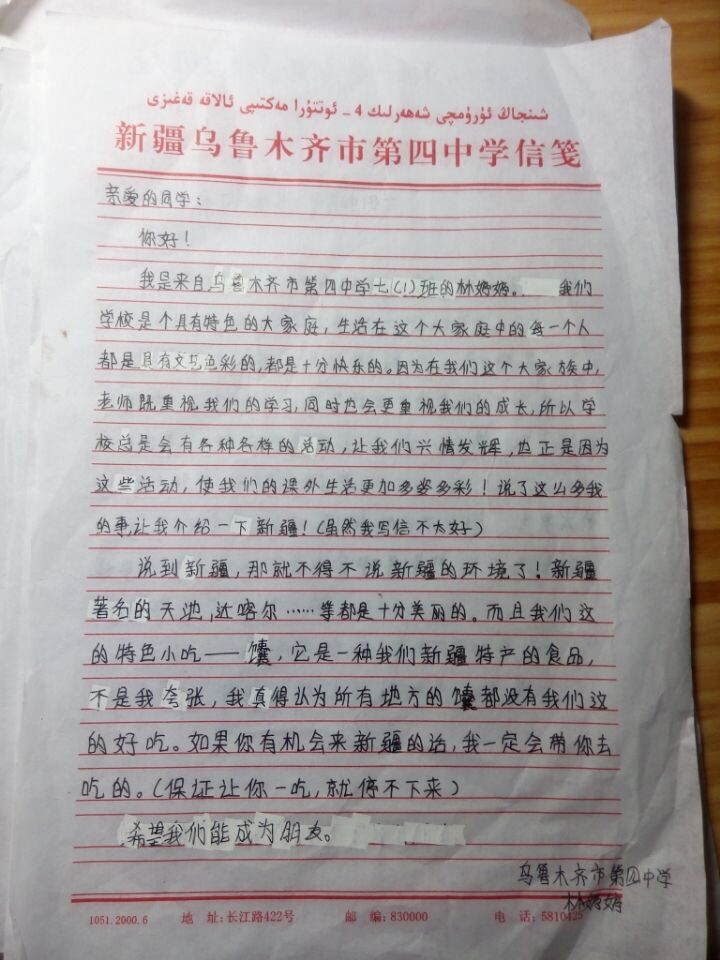 شىنجاڭ ئۈرۈمچى شەھەرلىك 4 - ئوتتۇرا مەكتىپى ئالاقە قەغىزى
新疆乌鲁木齐市第四中学信笺
亲爱的同学：
你好！
我是来自乌鲁木齐市第四中学七(1)班的林婷婷。我们
学校是个具有特色的大家庭，生活在这个大家庭中的每一个人
都是具有文艺色彩的，都是十分快乐的。因为在我们这个大家族中，
老师既重视我们的学习，同时也会更重视我们的成长，所以学
校总是会有各种各样的活动，让我们兴情发辉，也正是因为
这些活动，使我们的课外生活更加多姿多彩！说了这么多我
的事，让我介绍一下新疆！(虽然我写信不太好)
说到新疆，那就不得不说新疆的环境了！新疆
著名的天池，达喀尔……等都是十分美丽的。而且我们这
的特色小吃——馕，它是一种我们新疆特产的食品，
不是我夸张，我真得认为所有地方的馕都没有我们这
的好吃。如果你有机会来新疆的话，我一定会带你去
吃的。(保证让你一吃，就停不下来)
希望我们能成为朋友。
乌鲁木齐市第四中学
林婷婷
1051.2000.6 地 址:长江路422号 邮 编:830000 电 话:5810425